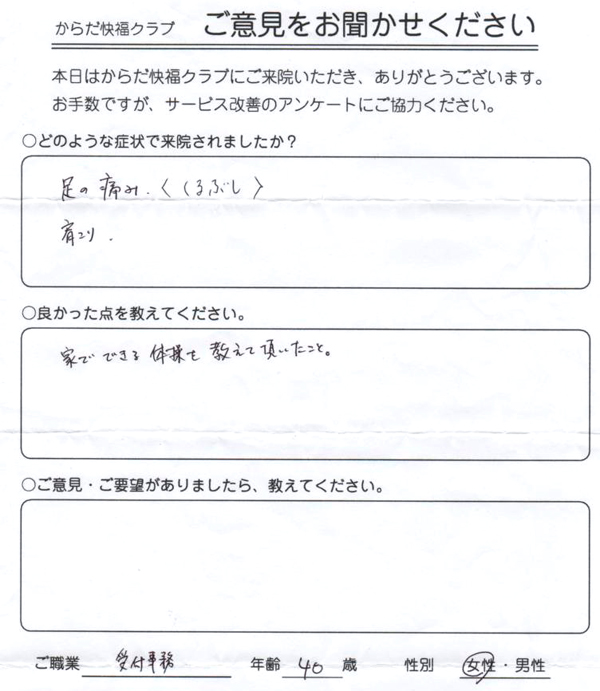 からだ快福クラブ ご意見をお聞かせください
本日はからだ快福クラブにご来院いただき、ありがとうございます。
お手数ですが、サービス改善のアンケートにご協力ください。
○どのような症状で来院されましたか?
足の痛み.〈くるぶし〉
肩こり.
○良かった点を教えてください。
家でできる体操を教えて頂いたこと。
○ご意見・ご要望がありましたら、教えてください。
ご職業 受付事務 年齢 40 歳 性別 女性・男性